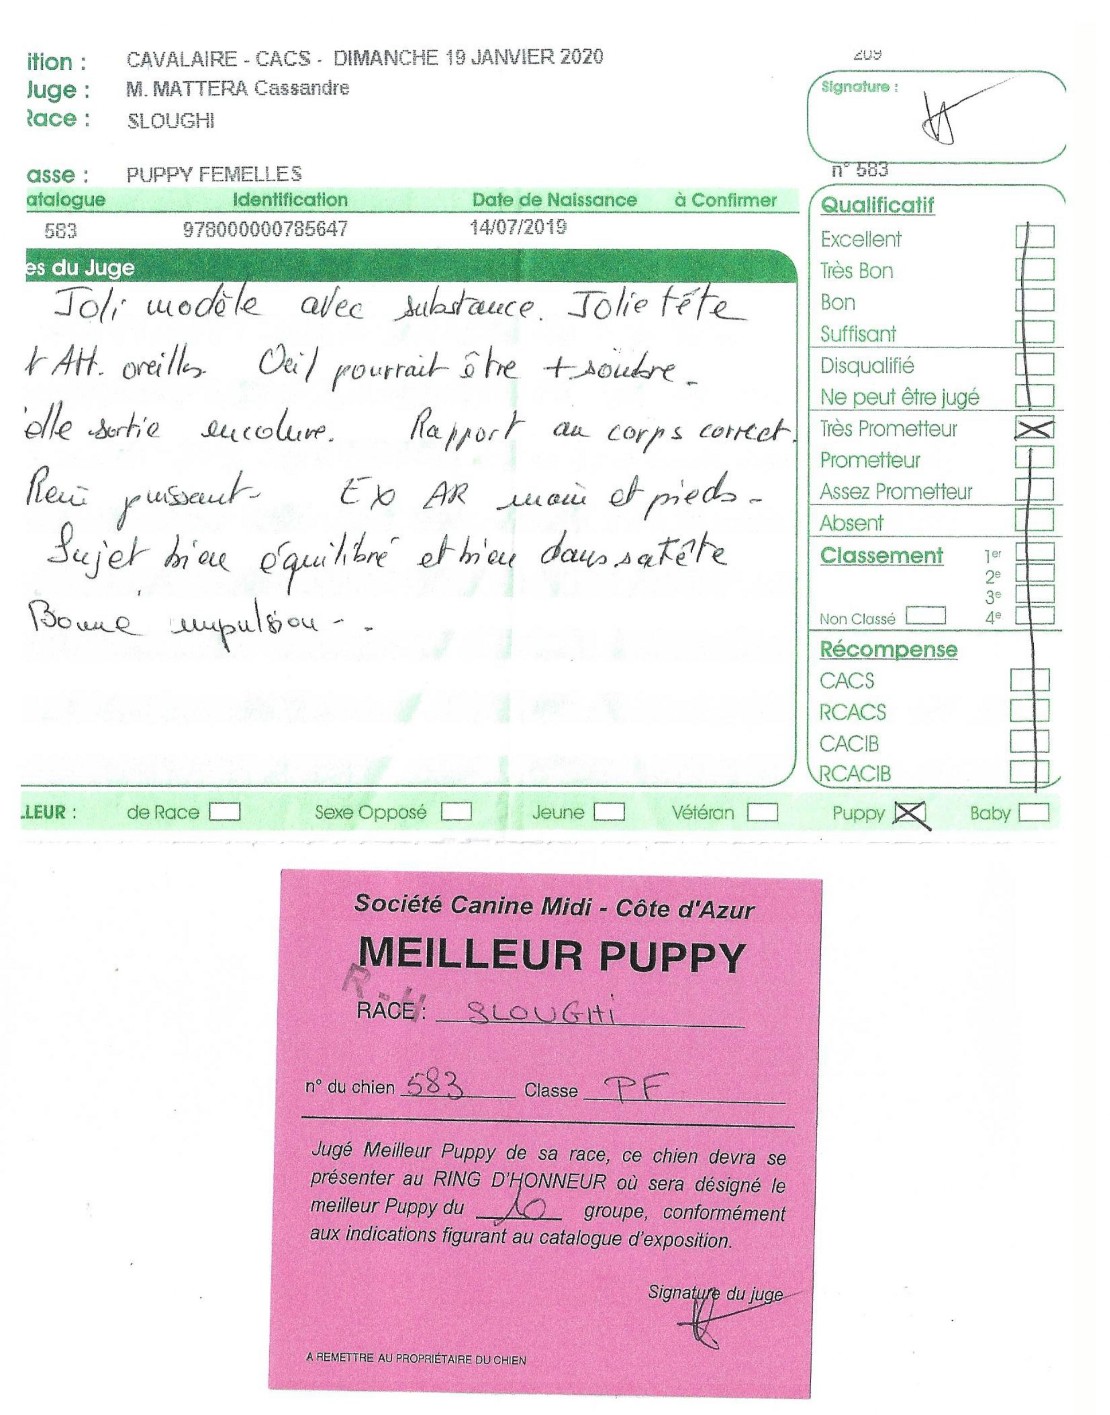 ition : CAVALAIRE - CACS - DIMANCHE 19 JANVIER 2020
Juge : M. MATTERA Cassandre
Race : SLOUGHI
asse : PUPPY FEMELLES
209
Signature :
n° 583
atalogue Identification Date de Naissance à Confirmer
583 978000000785647 14/07/2019
es du Juge
Joli modèle avec substance. Jolie tête
Att. oreilles. Oeil pourrait être + sombre.
elle sortie encolure. Rapport au corps correct.
Rein puissant - EX AR main et pieds -
Sujet bien équilibré et bien dans sa tête
Bonne impulsion - .
Qualificatif
Excellent
Très Bon
Bon
Suffisant
Disqualifié
Ne peut être jugé
Très Prometteur
Prometteur
Assez Prometteur
Absent
Classement 1er
2e
3e
Non Classé 4e
Récompense
CACS
RCACS
CACIB
RCACIB
LEUR : de Race Sexe Opposé Jeune Vétéran Puppy Baby
Société Canine Midi - Côte d'Azur
MEILLEUR PUPPY
RACE : SLOUGHI
n° du chien 583 Classe PF
Jugé Meilleur Puppy de sa race, ce chien devra se
présenter au RING D'HONNEUR où sera désigné le
meilleur Puppy du 10 groupe, conformément
aux indications figurant au catalogue d'exposition.
Signature du juge
A REMETTRE AU PROPRIÉTAIRE DU CHIEN